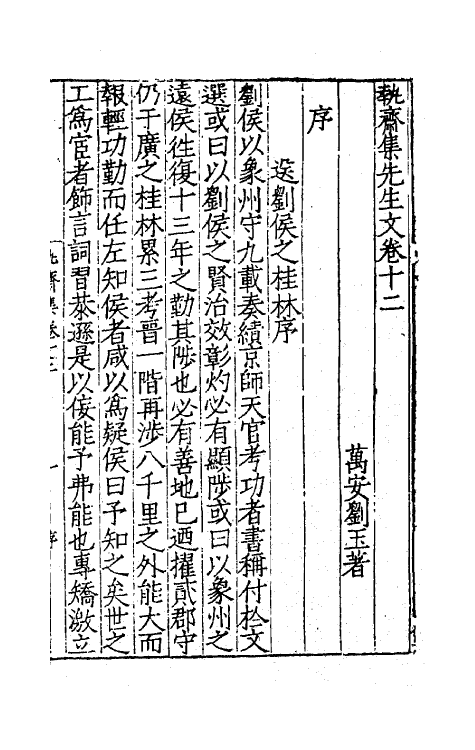 執齋集先生文卷十二
萬安劉玉著
序
送劉侯之桂林序
劉侯以象州守九載奏績京師天官考功者書稱付於文
選或曰以劉侯之賢治效彰灼必有顯陟或曰以象州之
遠侯往復十三年之勤其陟也必有善地已迺擢貳郡守
仍于廣之桂林累三考晉一階再涉八千里之外能大而
報輕功勤而任左知侯者咸以為疑侯曰予知之矣世之
工為宦者飾言詞習恭遜是以佞能予弗能也專矯激立
執齋集卷十二
一
序